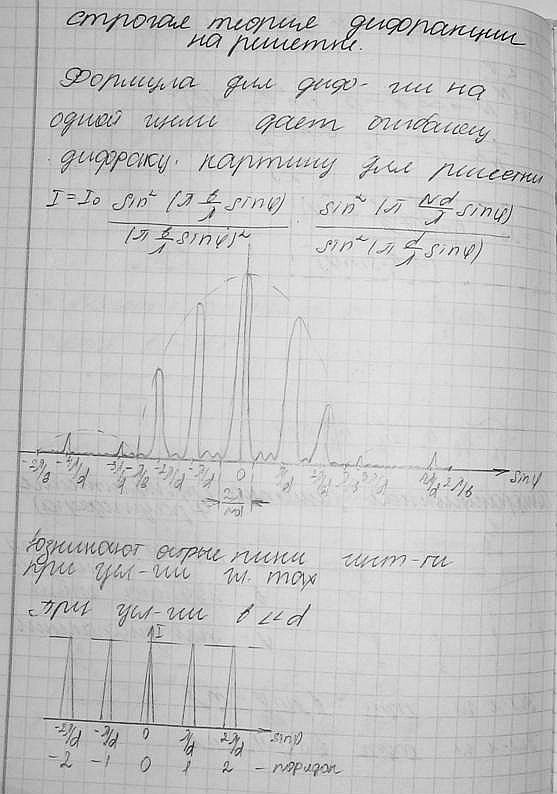 строгая теория дифракции
на решетке.
Формула для диф-ции на
одной щели дает огибающ.
дифракц. картину для решетки
I = I₀ sin² (π b/λ sinφ) / (π b/λ sinφ)² · sin² (π Nd/λ sinφ) / sin² (π d/λ sinφ)
0
sinφ
возникают острые пики инт-ти
при усл-ии гл. max
при усл-ии d>>b
I
-2λ/d -λ/d 0 λ/d 2λ/d sinφ
-2 -1 0 1 2 - порядок